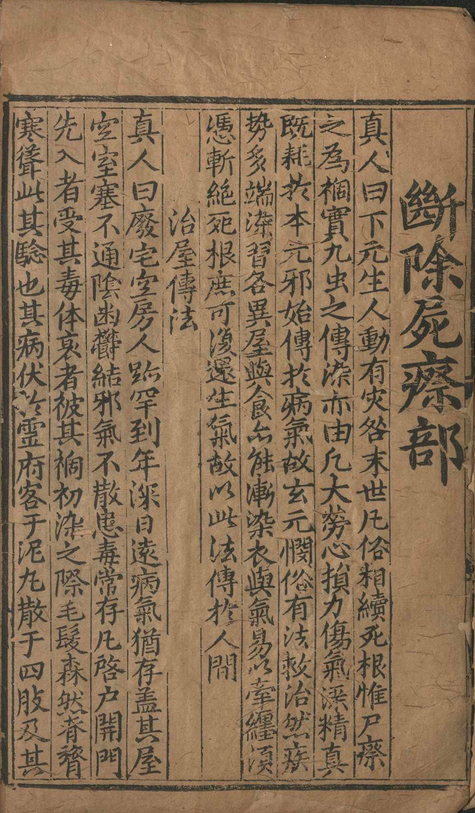 斷除屍瘵部
真人曰下元生人動有灾咎末世凡俗相續死根惟尸瘵
之為禍實九虫之傳染亦由凡大勞心損力傷氣深精真
既耗於本元邪始傳於病氣故玄元憫俗有法救治然疾
勢多端染習各異屋與食亦能漸染衣與氣易以牽纏湏
憑斬絶死根庶可復還生氣故以此法傳於人間
治屋傳法
真人曰廢宅空房人跡罕到年深日遠病氣猶存盖其屋
空室塞不通陰幽欝結邪氣不散患毒常存凡啓户開門
先入者受其毒体衰者被其禍初染之際毛髮森然脊膂
寒聳此其驗也其病伏於靈府客于泥丸散于四肢及其